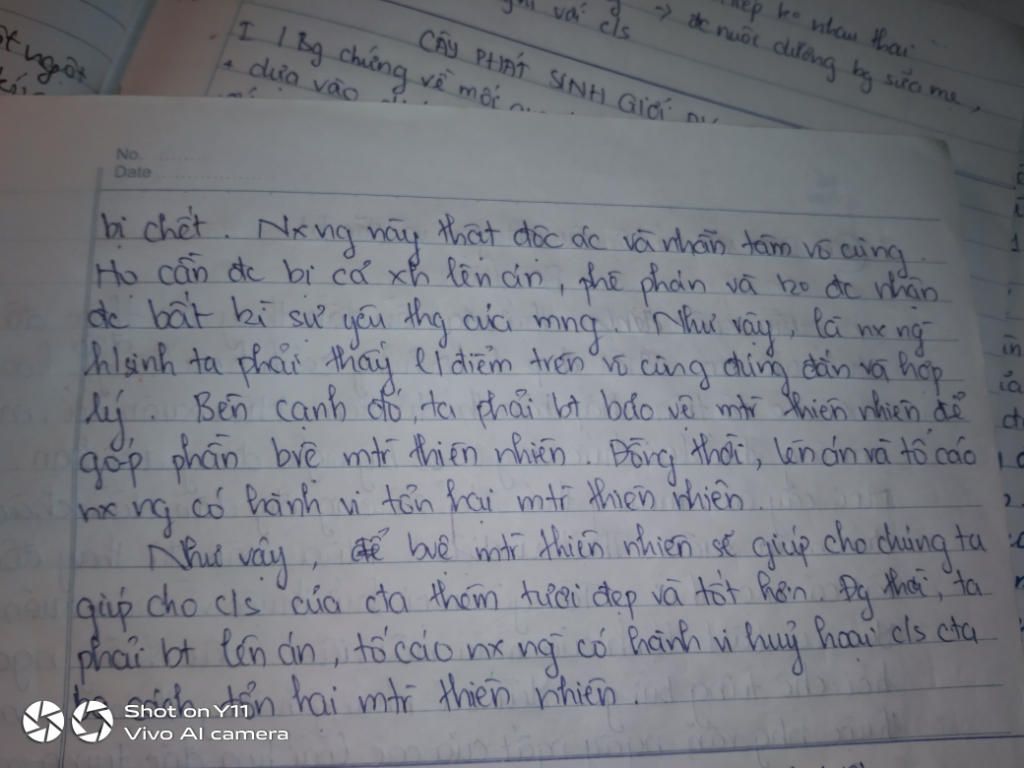 → đc nuôi dưỡng bg sữa mẹ,
với c/s
CÂY PHÁT SINH GIỚI
I / Bg chứng về mối
+ dựa vào
No.
Date
bị chết. Nx ng này thật độc ác và nhẫn tâm vô cùng.
Họ cần đc bị cả xh lên án, phê phán và ko đc nhận
đc bất kì sự yêu thg của mng. Như vậy, là nx ng
h/sinh ta phải thấy q/điểm trên vô cùng đúng đắn và hợp
lý. Bên cạnh đó, ta phải bt bảo vệ mtr thiên nhiên để
góp phần bvệ mtr thiên nhiên. Đồng thời, lên án và tố cáo
nx ng có hành vi tổn hại mtr thiên nhiên.
Như vậy, để bvệ mtr thiên nhiên sẽ giúp cho chúng ta
giúp cho c/s của cta thêm tươi đẹp và tốt hơn. Đg thời, ta
phải bt lên án, tố cáo nx ng có hành vi huỷ hoại c/s cta
tổn hại mtr thiên nhiên.
Shot on Y11
Vivo AI camera